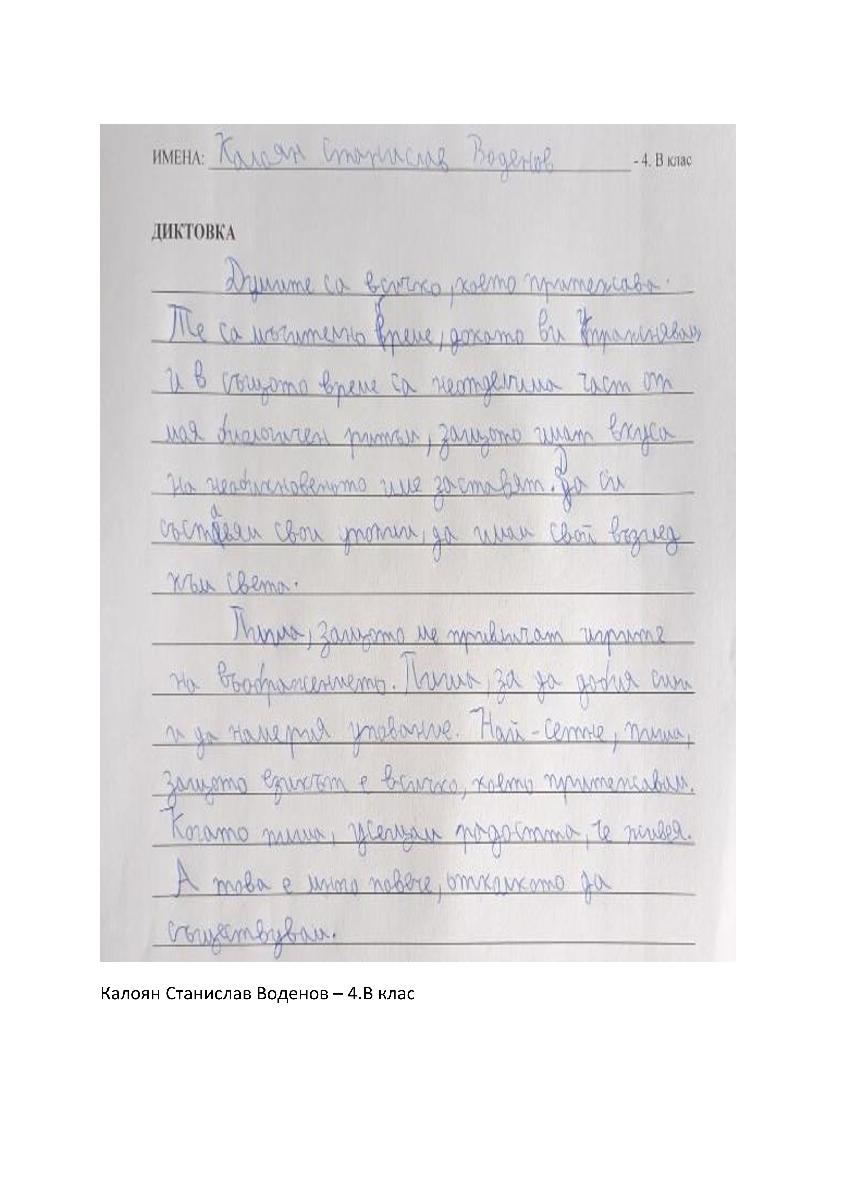 ИМЕНА: Калоян Станислав Воденов - 4. В клас
ДИКТОВКА
Думите са всичко, което притежава.
Те са мъчително време, докато ви упражнявам,
и в същото време са неотделима част от
моя биологичен ритъм, защото имат вкуса
на необикновеното име заставят. Да си
съставям свои утопии, да имам свой възглед
към света.
Пиша, защото ме привличат игрите
на въображението. Пиша, за да добия сили
и да намеря упование. Най-сетне, пиша,
защото езикът е всичко, което притежавам.
Когато пиша, усещам радостта, че живея.
А това е много повече, отколкото да
съществувам.
Калоян Станислав Воденов – 4.В клас